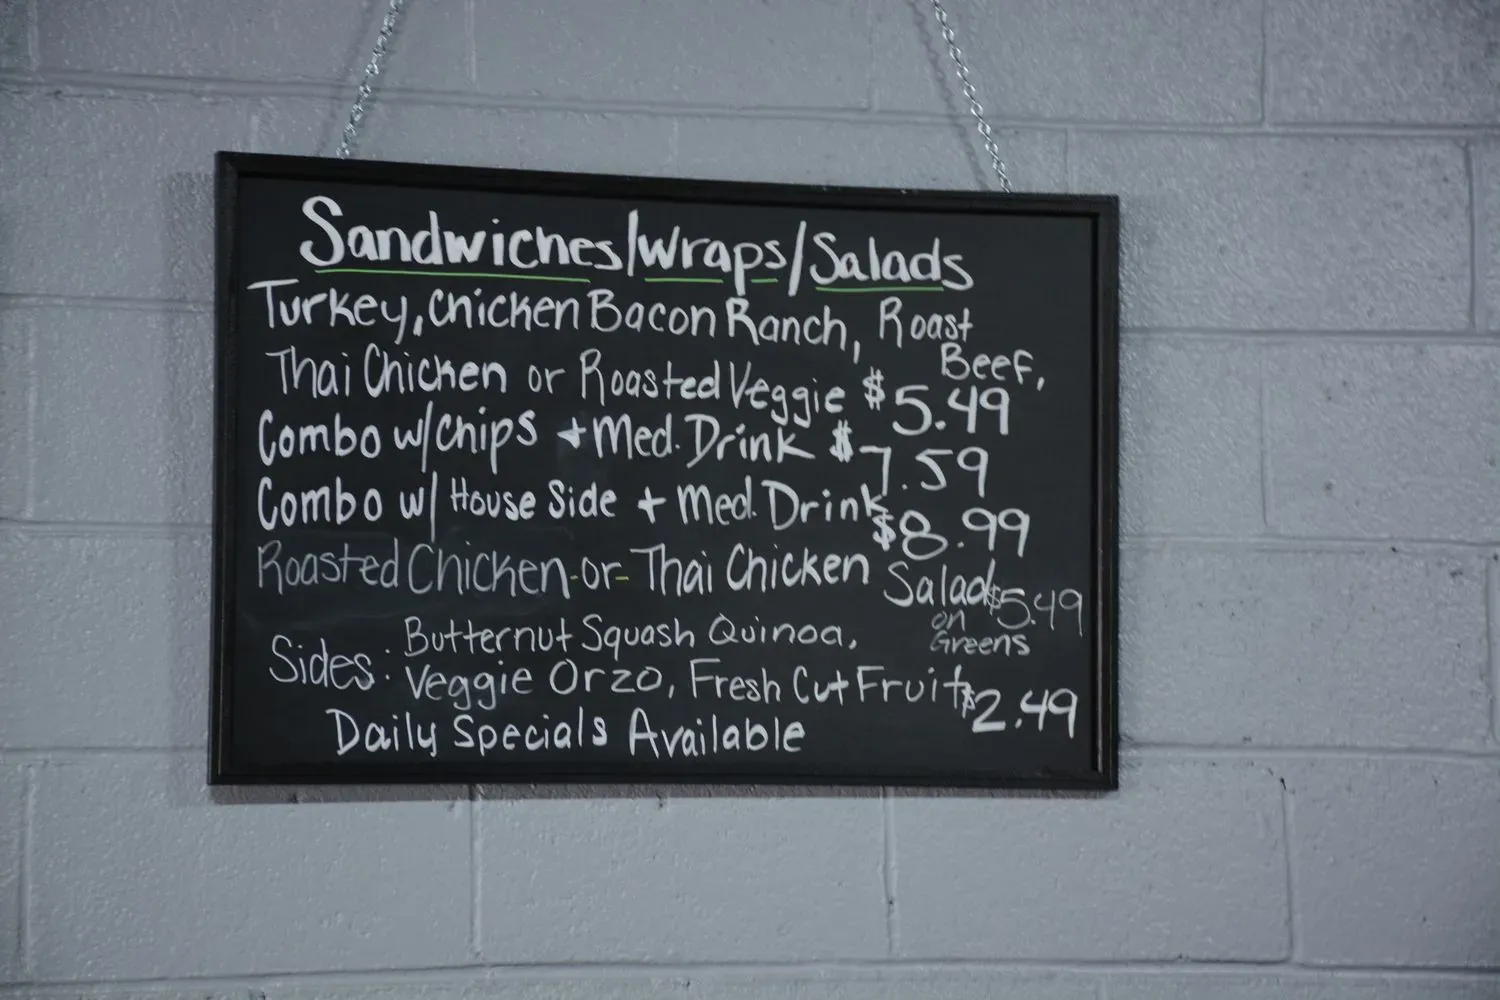 Sandwiches/Wraps/Salads
Turkey, Chicken Bacon Ranch, Roast Beef,
Thai Chicken or Roasted Veggie $5.49
Combo w/chips + Med. Drink $7.59
Combo w/ House Side + Med. Drink $8.99
Roasted Chicken-or-Thai Chicken Salad on Greens $5.49
Sides: Butternut Squash Quinoa,
Veggie Orzo, Fresh Cut Fruit $2.49
Daily Specials Available